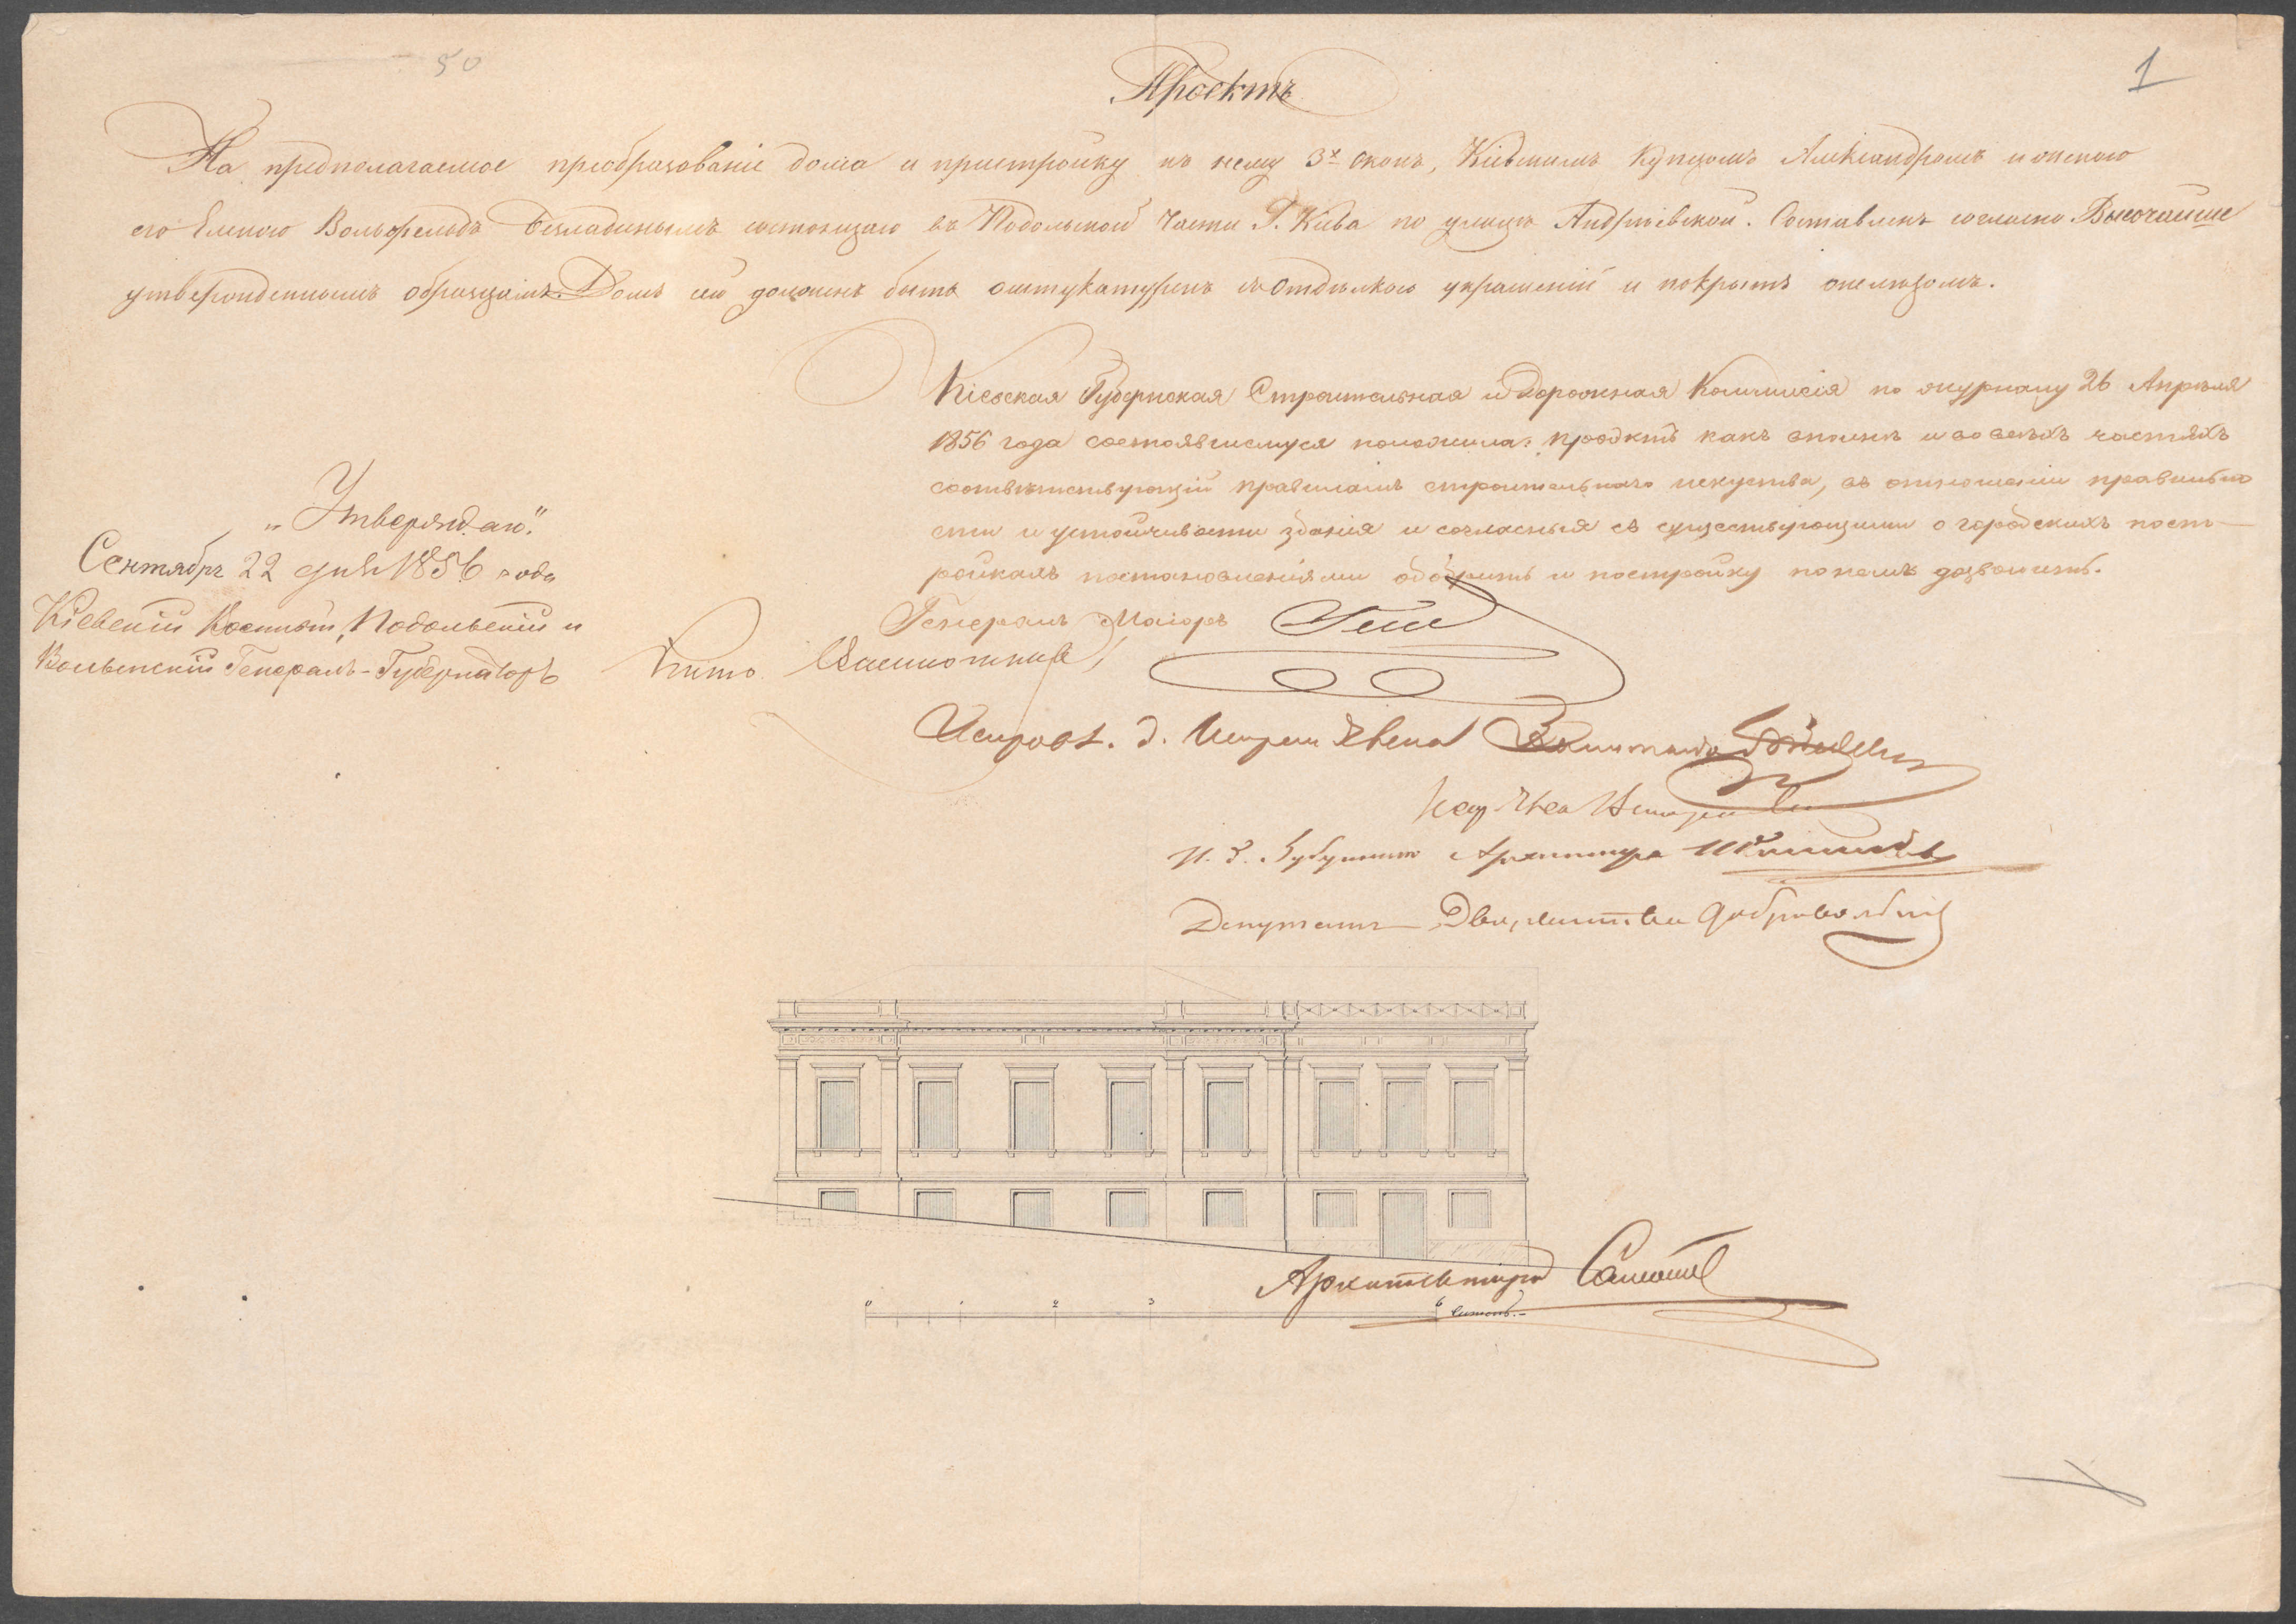 50
1
Проектъ
На предполагаемое преобразованіе дома и пристройку къ нему 3х оконъ, Кіевскимъ Купцомъ Александромъ и женою
его Еленою Вольфельдъ состоящаго въ Подольской Части Г. Кіева по улицѣ Андріевской. Составленъ согласно Высочайше
утвержденнымъ образцамъ. Домъ сей долженъ быть оштукатуренъ съ отдѣлкою украшеній и покрытъ желѣзомъ.
Кіевская Губернская Строительная и Дорожная Коммисія по журналу 26 Апрѣля
1856 года состоявшемуся положила: проэктъ какъ вполнѣ и во всѣхъ частяхъ
соотвѣтствующій правиламъ строительнаго искуства, въ отношеніи правильно
сти и устойчивости зданія и согласный съ существующими о городскихъ пост-
ройкахъ постановленіями одобрить и постройку по немъ дозволить.
„Утверждаю."
Сентября 22 дня 1856 года
Кіевскій Военный, Подольскій и
Волынскій Генералъ-Губернаторъ
Генералъ Маіоръ
Архитектора
Депутатъ Дворянства Добровольскій
Архитекторъ
0 1 2 3 6 саженъ.